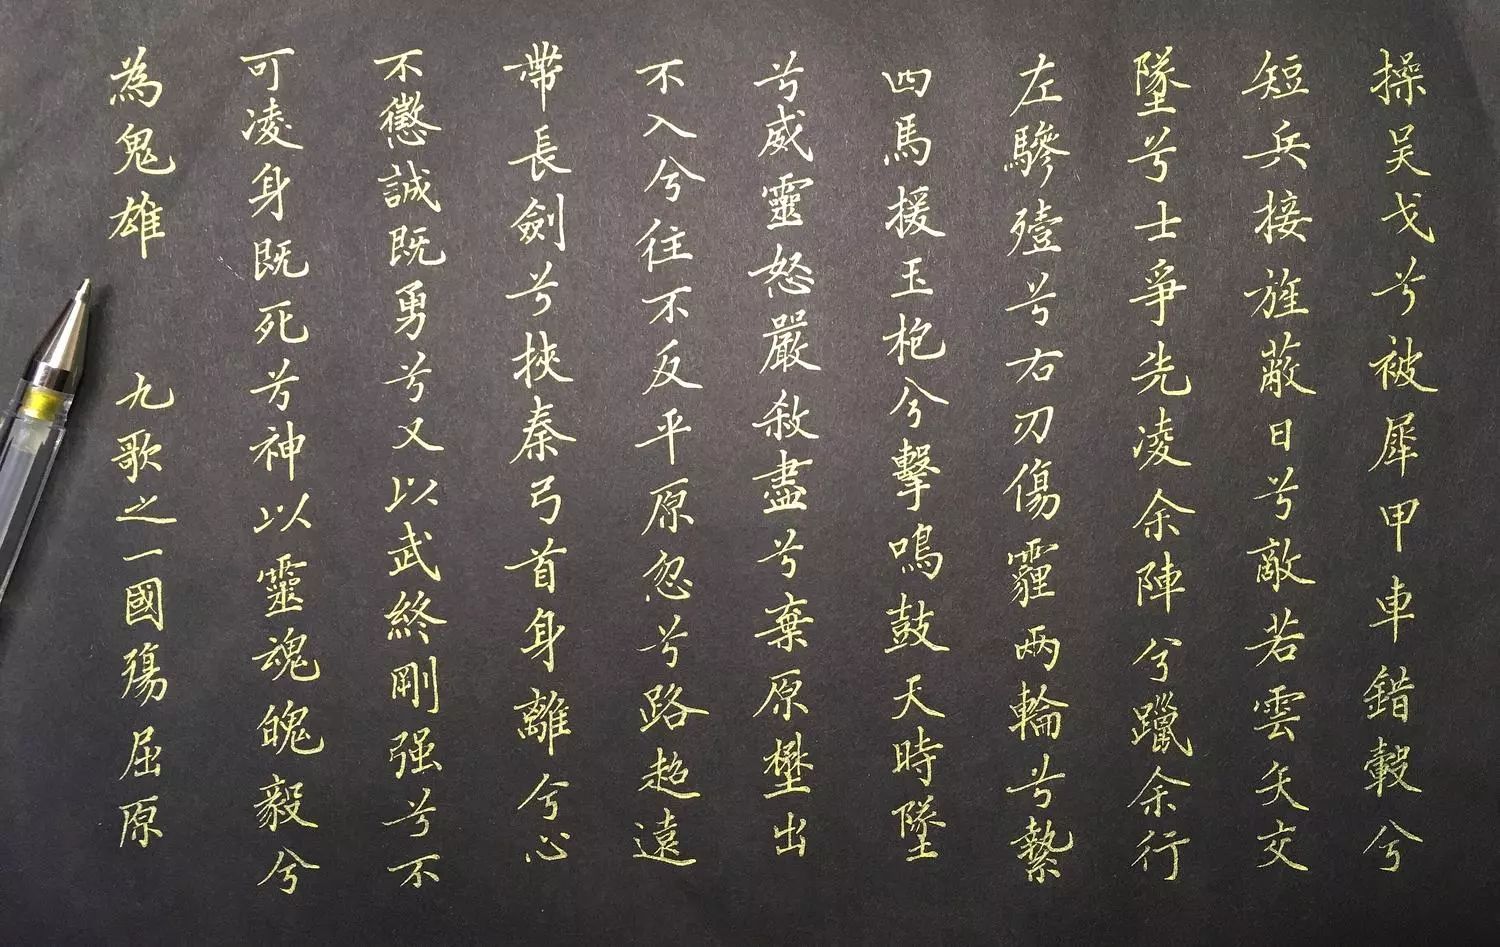 操吴戈兮被犀甲車錯轂兮
短兵接旌蔽日兮敵若雲矢交
墜兮士爭先凌余陣兮躐余行
左驂殪兮右刃傷霾兩輪兮縶
四馬援玉枹兮擊鳴鼓天時墜
兮威靈怒嚴殺盡兮棄原壄出
不入兮往不反平原忽兮路超遠
帶長劍兮挾秦弓首身離兮心
不懲誠既勇兮又以武終剛强兮不
可凌身既死兮神以靈魂魄毅兮
為鬼雄 九歌之一國殤屈原